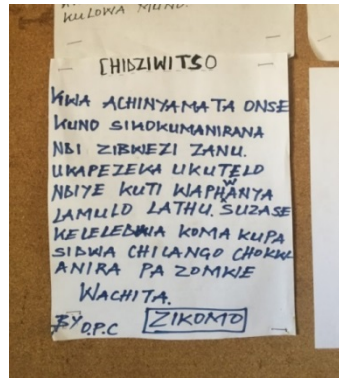 KULOWA MUNO.
CHIDZIWITSO
KWA ACHINYAMATA ONSE
KUNO SIKOKUMANIRANA
NDI ZIBWEZI ZANU.
UKAPEZEKA UKUTELO
NDIYE KUTI WAPHWANYA
LAMULO LATHU. SUZASE
KELELEDWA KOMA KUPA
SIDWA CHILANGO CHOKWA
ANIRA PA ZOMWE
WACHITA.
BY D.P.C ZIKOMO